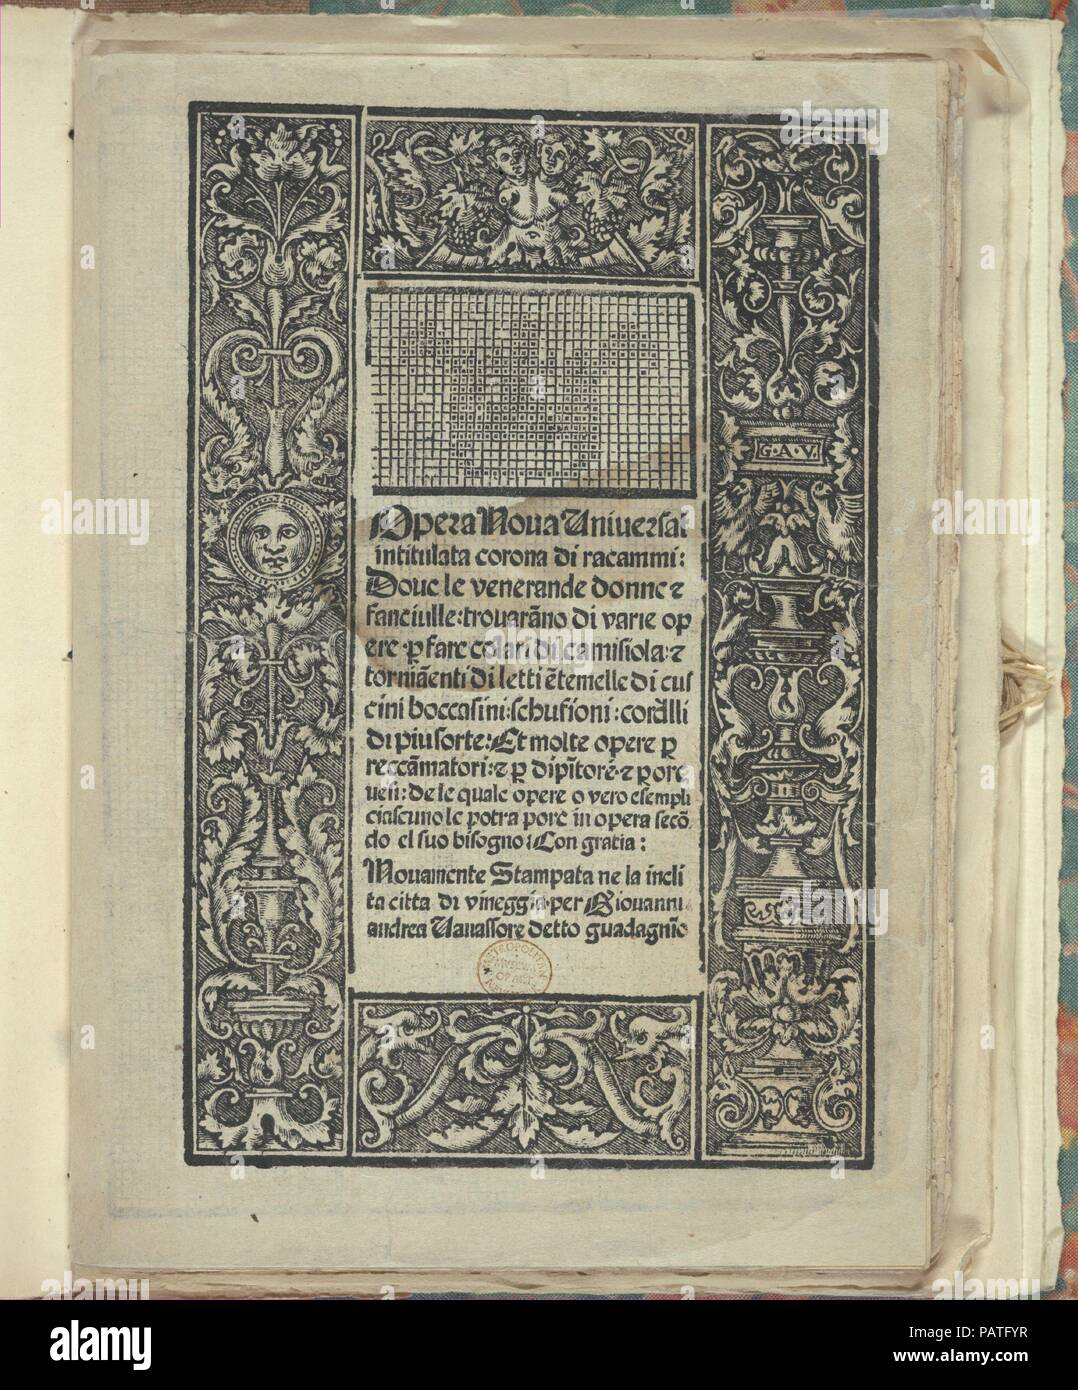 G·A·V·
Opera Noua Uniuersal
intitulata corona di racammi:
Doue le venerande donne ⁊
fanciulle: trouarāno di varie op
ere ꝑ fare colari di camisiola: ⁊
torniāenti di letti ētemelle di cus
cini boccasini: schufioni: cordlli
di piu sorte: Et molte opere ꝑ
reccāmatori: ⁊ ꝑ dipītore: ⁊ porc
uesi: de le quale opere o vero esempli
ciascuno le potra pore in opera secō
do el suo bisogno: Con gratia:
Nouamente Stampata ne la incli
ta citta di vineggia per Giouanni
andrea Vauassore detto guadagnīo
METROPOLITAN
MUSEUM
OF ART
alamy
Image ID: PATFYR
www.alamy.com